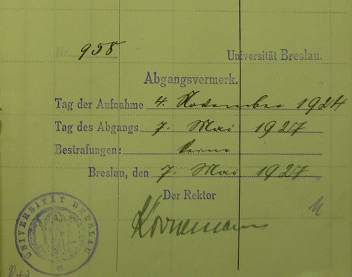 Nr. 958
Universität Breslau.
Abgangsvermerk.
Tag der Aufnahme 4. November 1924
Tag des Abgangs 7. Mai 1927
Bestrafungen: keine
Breslau, den 7. Mai 1927
Der Rektor
Kornemann
UNIVERSITÄT BRESLAU